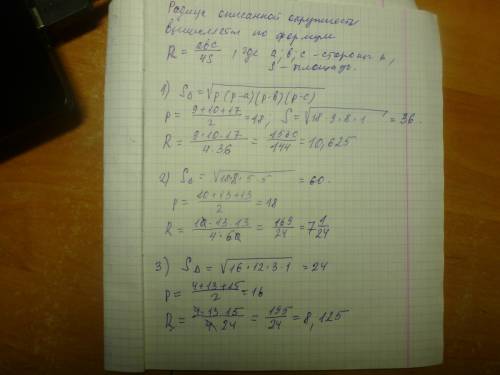 Радиус описанной окружности
вычисляется по формуле
R = abc/4S, где a; b; c - стороны,
S - площадь.
1) S△ = √p(p-a)(p-b)(p-c)
p = (9+10+17)/2 = 18; S = √18·9·8·1 = 36.
R = (9·10·17)/(4·36) = 1530/144 = 10,625
2) S△ = √18·8·5·5 = 60.
p = (10+13+13)/2 = 18
R = (10·13·13)/(4·60) = 169/24 = 7 1/24
3) S△ = √16·12·3·1 = 24
p = (4+13+15)/2 = 16
R = (4·13·15)/(4·24) = 195/24 = 8,125